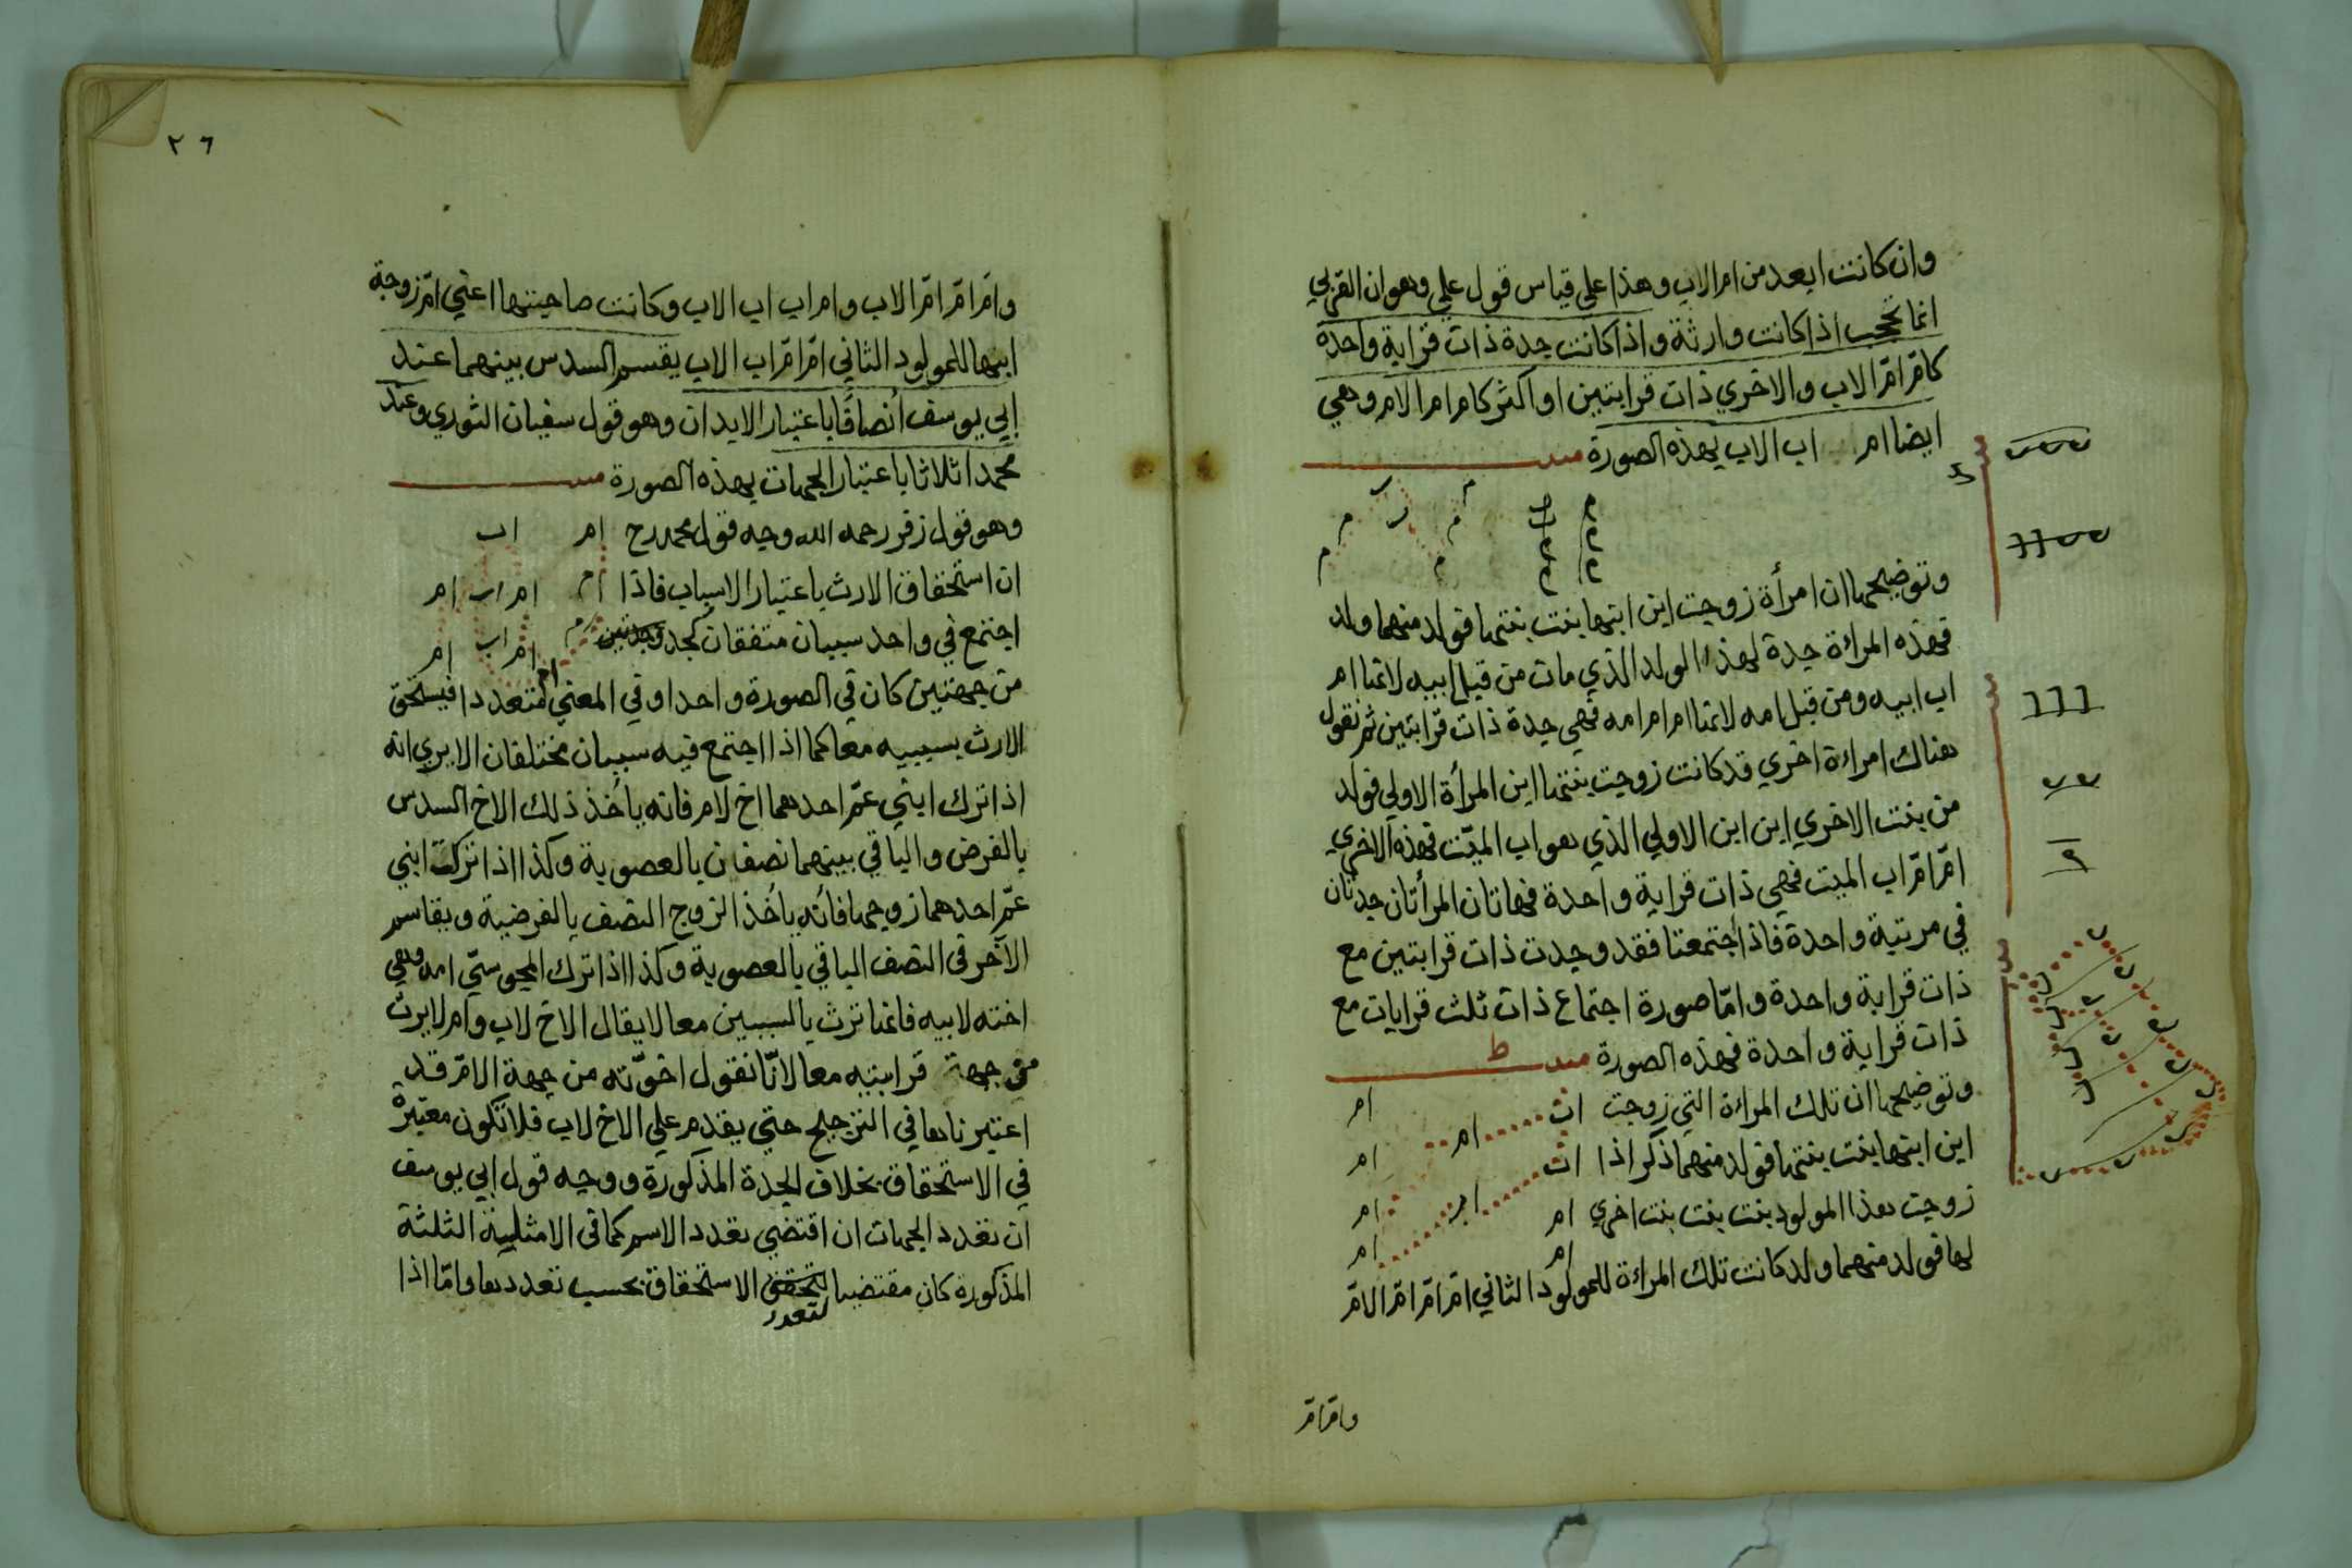 وان كانت ابعد من ام الاب وهذا علي قياس قول علي وهو ان القربي
انما تحجب اذا كانت وارثة واذا كانت جدة ذات قرابة واحدة
كامّ امّ الاب والاخري ذات قرابتين او اكثر كام ام الام وهي
ايضا ام اب الاب بهذه الصورة
وتوضيحها ان امرأة زوجت ابن ابنها بنت بنتها فولد منهما ولد
فهذه المراءة جدة لهذا الولد الذي مات من قبل ابيه لانها ام
اب ابيه ومن قبل امه لانها ام ام امه فهي جدة ذات قرابتين ثم نقول
هناك امراءة اخري قد كانت زوجت بنتها ابن المرأة الاولي فولد
من بنت الاخري ابن ابن الاولي الذي هو اب الميّت فهذه الاخري
امّ امّ اب الميت فهي ذات قرابة واحدة فهاتان المرأتان جدتان
في مرتبة واحدة فاذا اجتمعتا فقد وجدت ذات قرابتين مع
ذات قرابة واحدة وامّا صورة اجتماع ذات ثلث قرابات مع
ذات قرابة واحدة فهذه الصورة
وتوضيحها ان تلك المراءة التي زوجت
ابن ابنها بنت بنتها فولد منهما ذكر اذا
زوجت هذا المولود بنت بنت بنت اخري
لها فولد منهما ولد كانت تلك المراءة للمولود الثاني امّ امّ امّ الامّ
وامّ امّ
٢٦
وامّ امّ امّ الاب وام اب اب الاب وكانت صاحبتها اعني امّ زوجة
ابنها للمولود الثاني امّ امّ اب الاب يقسم السدس بينهما عند
ابي يوسف انصافًا باعتبار الابدان وهو قول سفيان الثوري وعند
محمد اثلاثا باعتبار الجهات بهذه الصورة
وهو قول زفر رحمه الله وجه قول محمد رح ام اب
ان استحقاق الارث باعتبار الاسباب فاذا ام ام اب ام
اجتمع في واحد سببان متفقان كجدة ام اب ام
من جهتين كان في الصورة واحدا وفي المعني متعددا فيستحق
الارث بسببيه معا كما اذا اجتمع فيه سببان مختلفان الا يري انه
اذا ترك ابني عمّ احدهما اخ لام فانه يأخذ ذلك الاخ السدس
بالفرض والباقي بينهما نصفان بالعصوبة وكذا اذا تركت ابني
عمّ احدهما زوجها فانّه يأخذ الزوج النصف بالفرضية ويقاسم
الآخر في النصف الباقي بالعصوبة وكذا اذا ترك المجوسيّ امه وهي
اخته لابيه فانها ترث بالسببين معا لا يقال الاخ لاب وام لا يرث
من جهة قرابتيه معا لانّا نقول اخوّته من جهة الامّ قد
اعتبرناها في الترجيح حتي يقدم علي الاخ لاب فلا تكون معتبرة
في الاستحقاق بخلاف الجدة المذكورة ووجه قول ابي يوسف
ان تعدد الجهات ان اقتضي تعدد الاسم كما في الامثلة الثلثة
المذكورة كان مقتضيا لتعدد الاستحقاق بحسب تعددها وامّا اذا